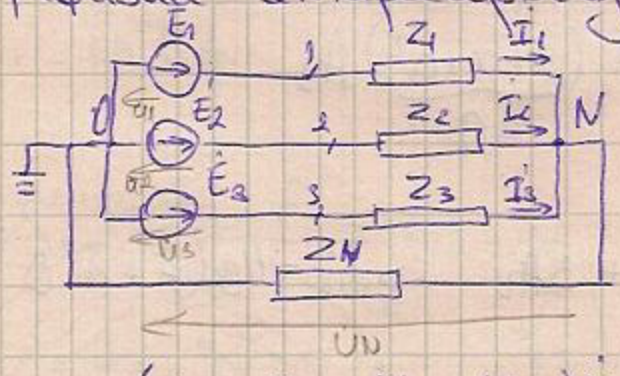 E1 1 Z1 I1
U1
0 E2 2 Z2 I2 N
U2
E3 3 Z3 I3
U3
ZN
UN